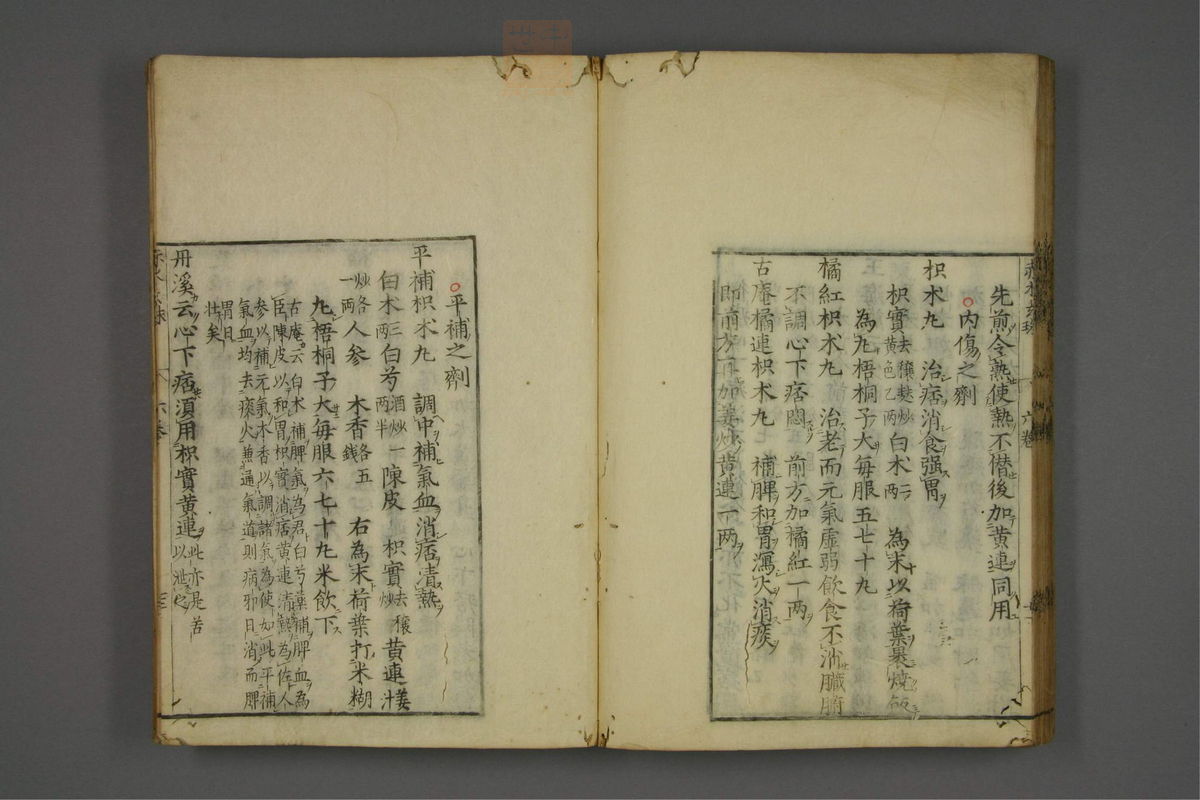 先煎令熟使熱不僣後加黄連同用
内傷之劑
枳朮丸 治痞消食强胃
枳實去穰麩炒黄色乙两 白朮二两 為末以荷葉裹燒飯
為丸梧桐子大毎服五七十丸
橘紅枳朮丸 治老而元氣虛弱飲食不消臟腑
不調心下痞悶 前方加橘紅一两
古庵橘連枳朮丸 補脾和胃瀉火消痰
即前方再加姜炒黄連一两
六卷
平補之劑
平補枳朮丸 調中補氣血消痞清熱
白朮三两 白芍酒炒一两半 陳皮 枳實去穰炒 黄連姜汁
炒各一两 人參 木香各五錢 右為末荷葉打米糊
丸梧桐子大毎服六七十丸米飲下
古庵云白朮補脾氣為君白芍藥補脾血為
臣陳皮以和胃枳實消痞黄連清熱為佐人
參以補元氣木香以調諸氣為使如此平補
氣血均去痰火兼通氣道則病邪日消而脾
胃日
壮矣
丹溪云心下痞須用枳實黄連此亦是苦以泄之
六卷